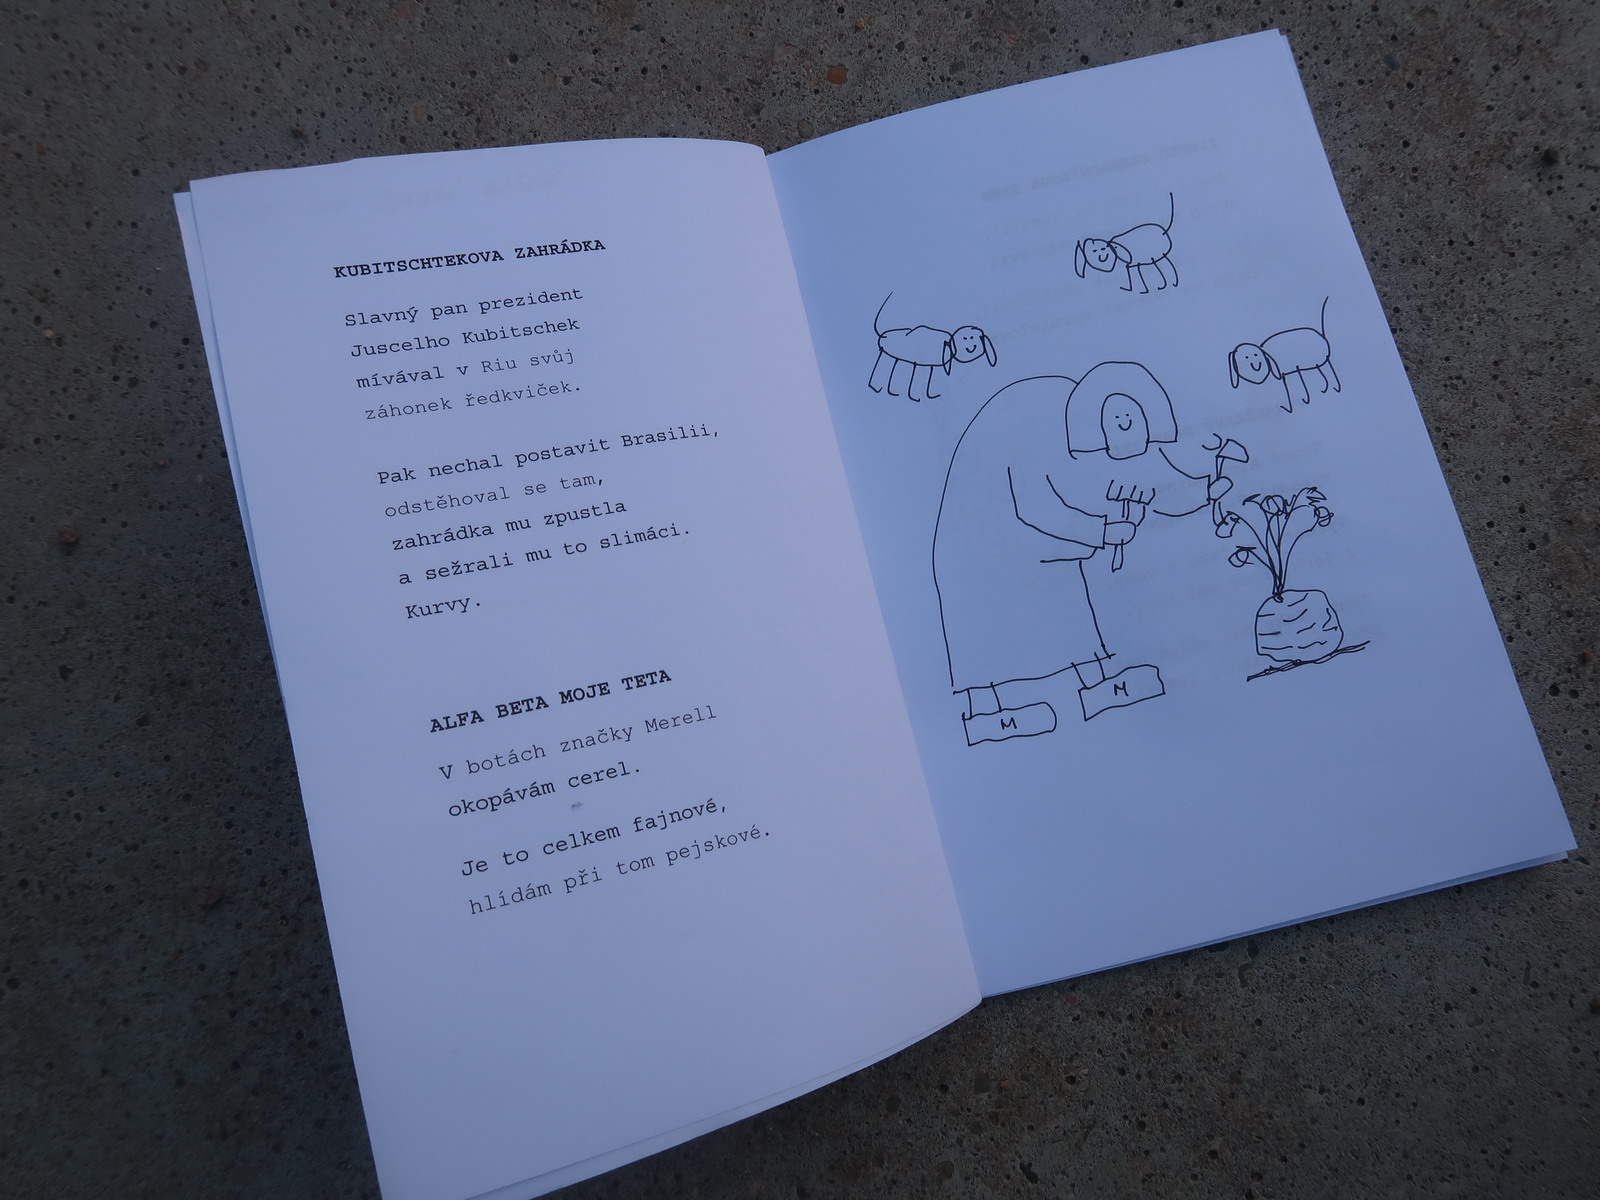 KUBITSCHTEKOVA ZAHRÁDKA
Slavný pan prezident
Juscelho Kubitschek
mívával v Riu svůj
záhonek ředkviček.
Pak nechal postavit Brasilii,
odstěhoval se tam,
zahrádka mu zpustla
a sežrali mu to slimáci.
Kurvy.
ALFA BETA MOJE TETA
V botách značky Merell
okopávám cerel.
Je to celkem fajnové,
hlídám při tom pejskové.
M
M